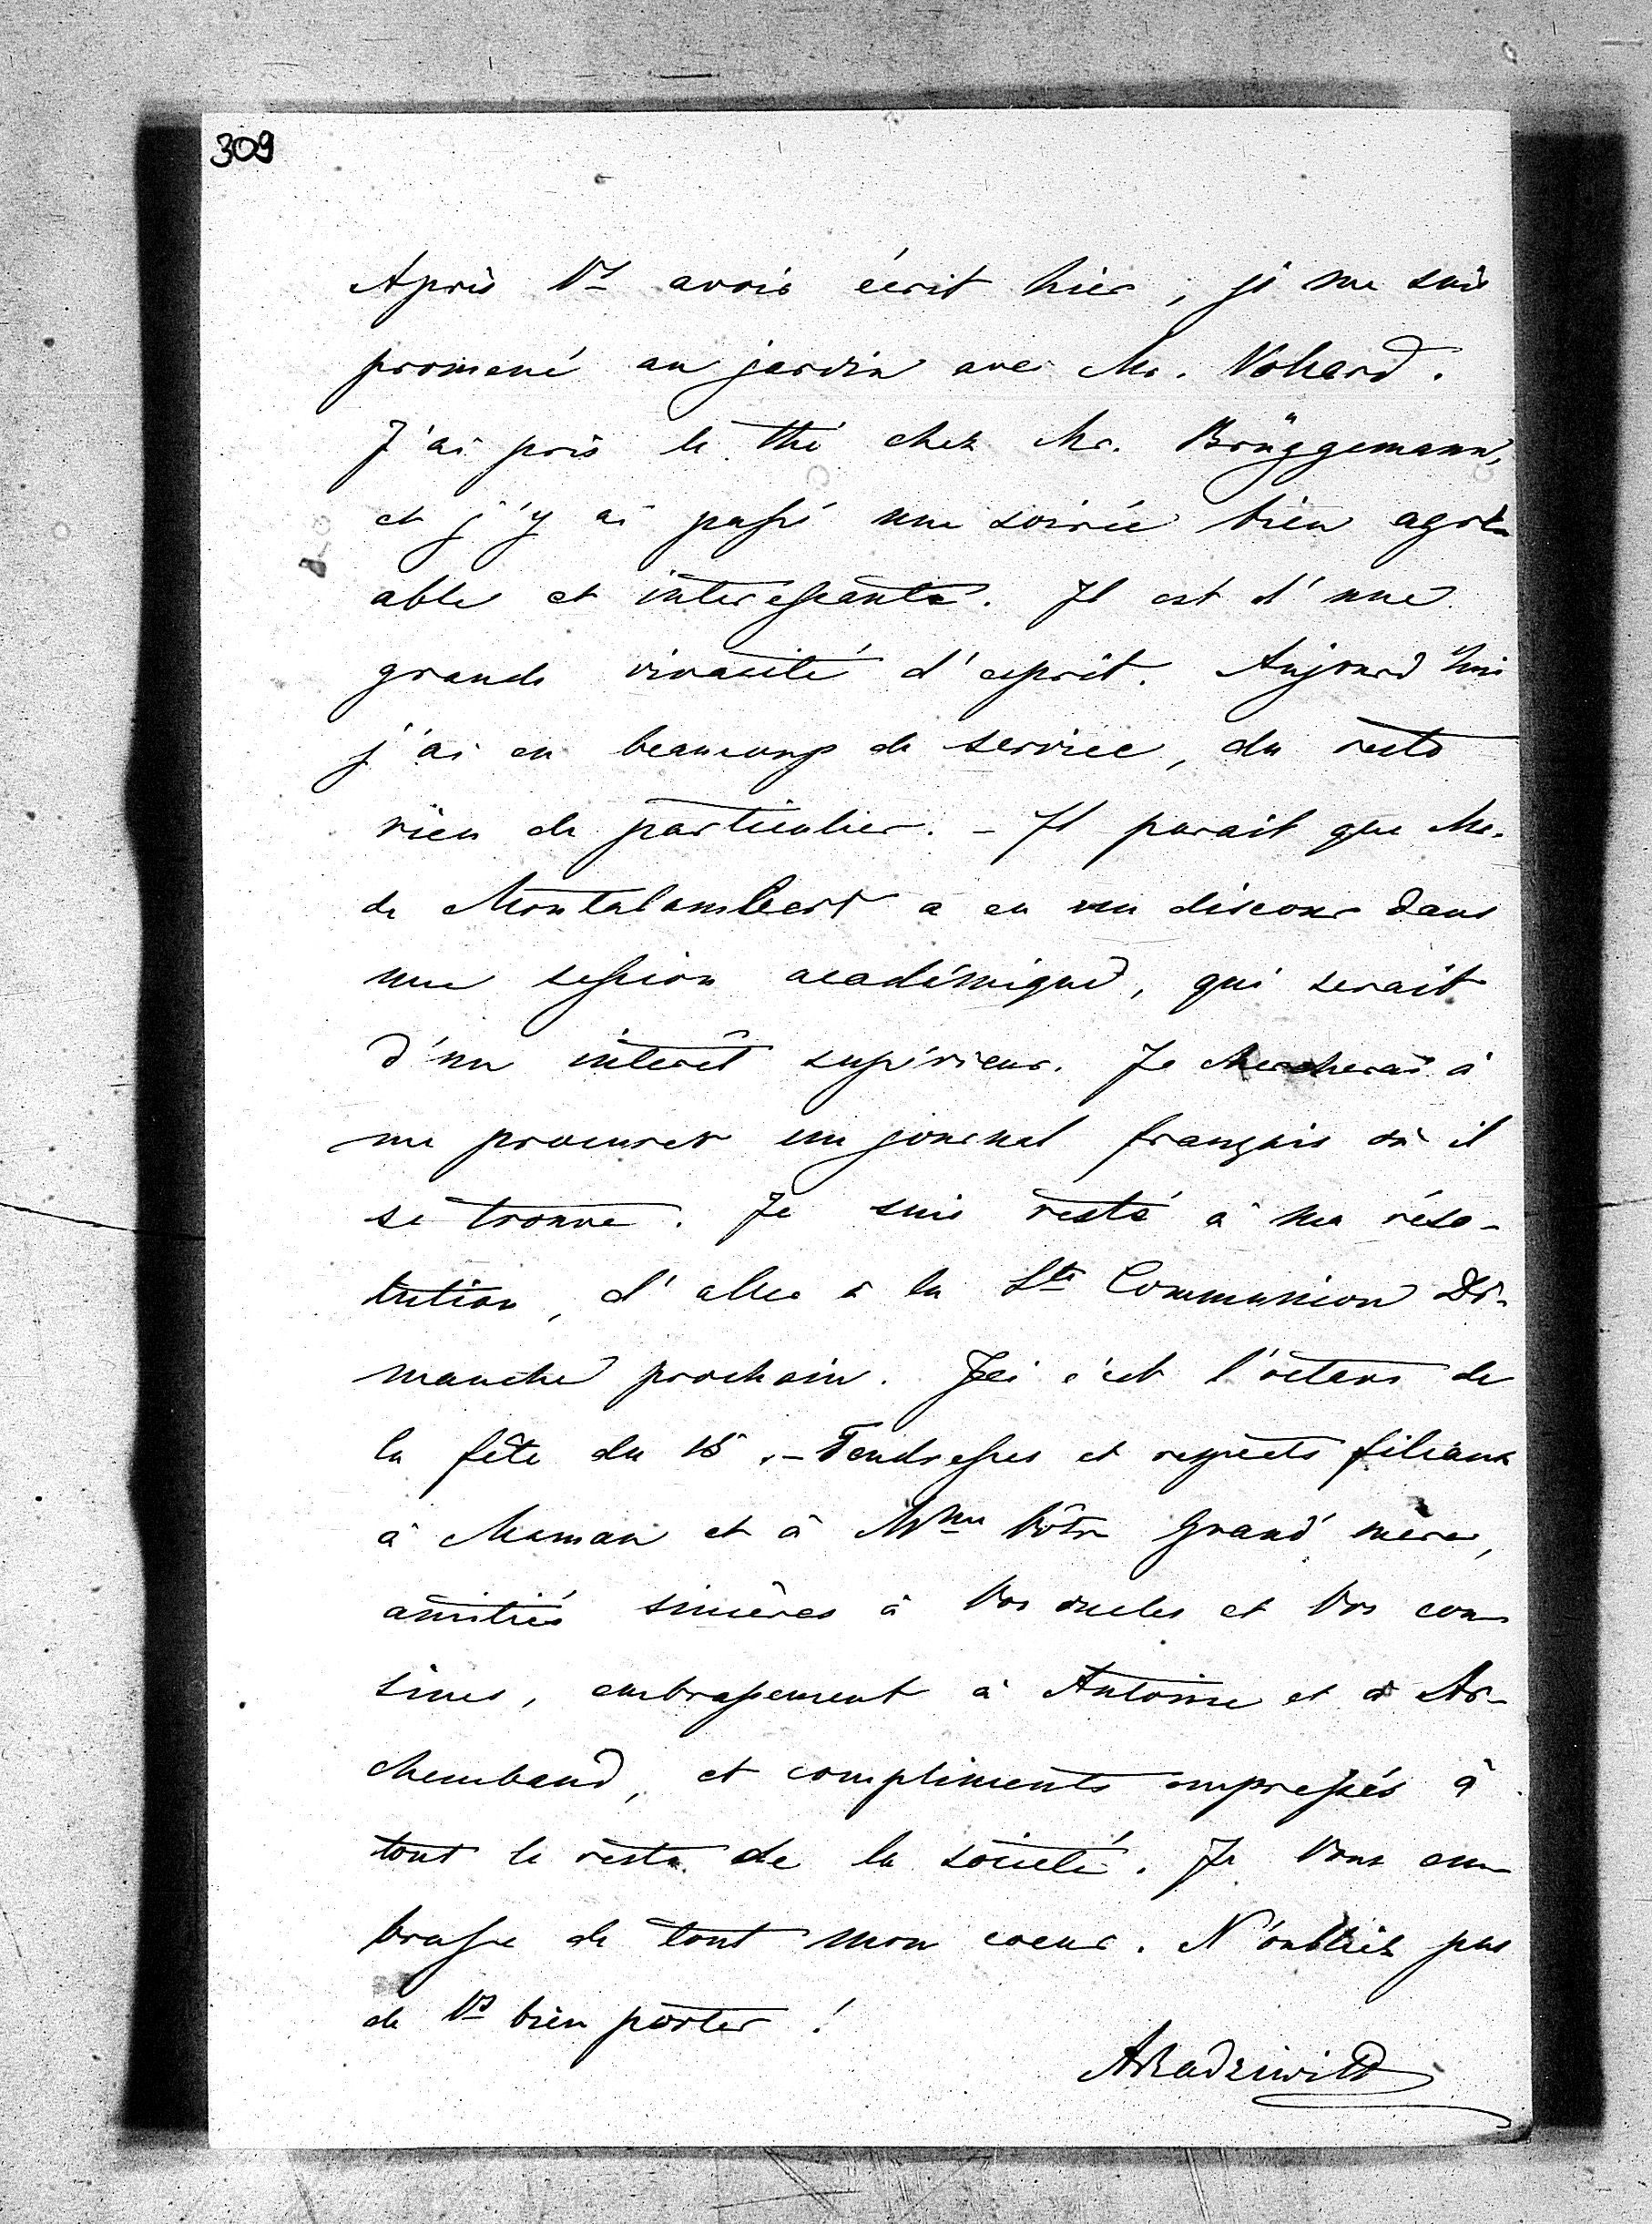 309
Après Vs avoir écrit hier, je me suis
promené au jardin avec Mr. Volhard.
J'ai pris le thé chez Mr. Brüggemann,
et j'y ai passé une soirée bien agré-
able et interessante. Il est d'une
grande vivacité d'esprit. Aujourd'hui
j'ai eu beaucoup de service, du reste
rien de particulier. – Il parait que Mr.
de Montalambert a eu un discour dans
une session académique, qui serait
d'un interêt supérieur. Je chercherai à
me procurer un journal français où il
se trouve. Je suis resté à ma réso-
lution, d'aller à la Ste Communion Di-
manche prochain. Ici c'est l'octave de
la fête du 15. – Tendresses et respects filiaux
à Maman et à Mme Vôtre Grand' mère,
amitiés sincères à Vos oncles et Vos cou-
sines, embrassement à Antoine et à Ar-
chembaud, et compliments empressés à
tout le reste de la société. Je Vous em-
brasse de tout mon coeur. N'oubliez pas
de Vs bien porter !
ARadziwill